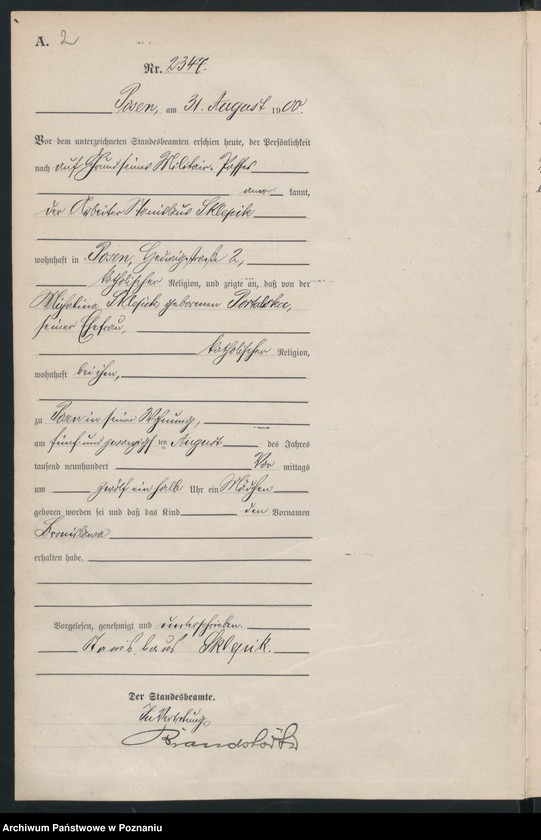 A. 2
Nr. 2347.
Posen, am 31. August 1900.
Vor dem unterzeichneten Standesbeamten erschien heute, der Persönlichkeit
nach auf Grund seines Militair-Passes
aner kannt,
der Arbeiter Stanislaus Sklepik
wohnhaft in Posen, Hedwigstraße 2,
katholischer Religion, und zeigte an, daß von der
Sklepik geborenen
seiner Ehefrau,
katholischer Religion,
wohnhaft bei ihm,
zu Posen in seiner Wohnung,
am fünf und zwanzigsten August des Jahres
tausend neunhundert Vor mittags
um zwölf ein halb Uhr ein Mädchen
geboren worden sei und daß das Kind den Vornamen
Bronislawa
erhalten habe.
Vorgelesen, genehmigt und unterschrieben.
Stanislaus Sklepik.
Der Standesbeamte.
In Vertretung
Archiwum Państwowe w Poznaniu